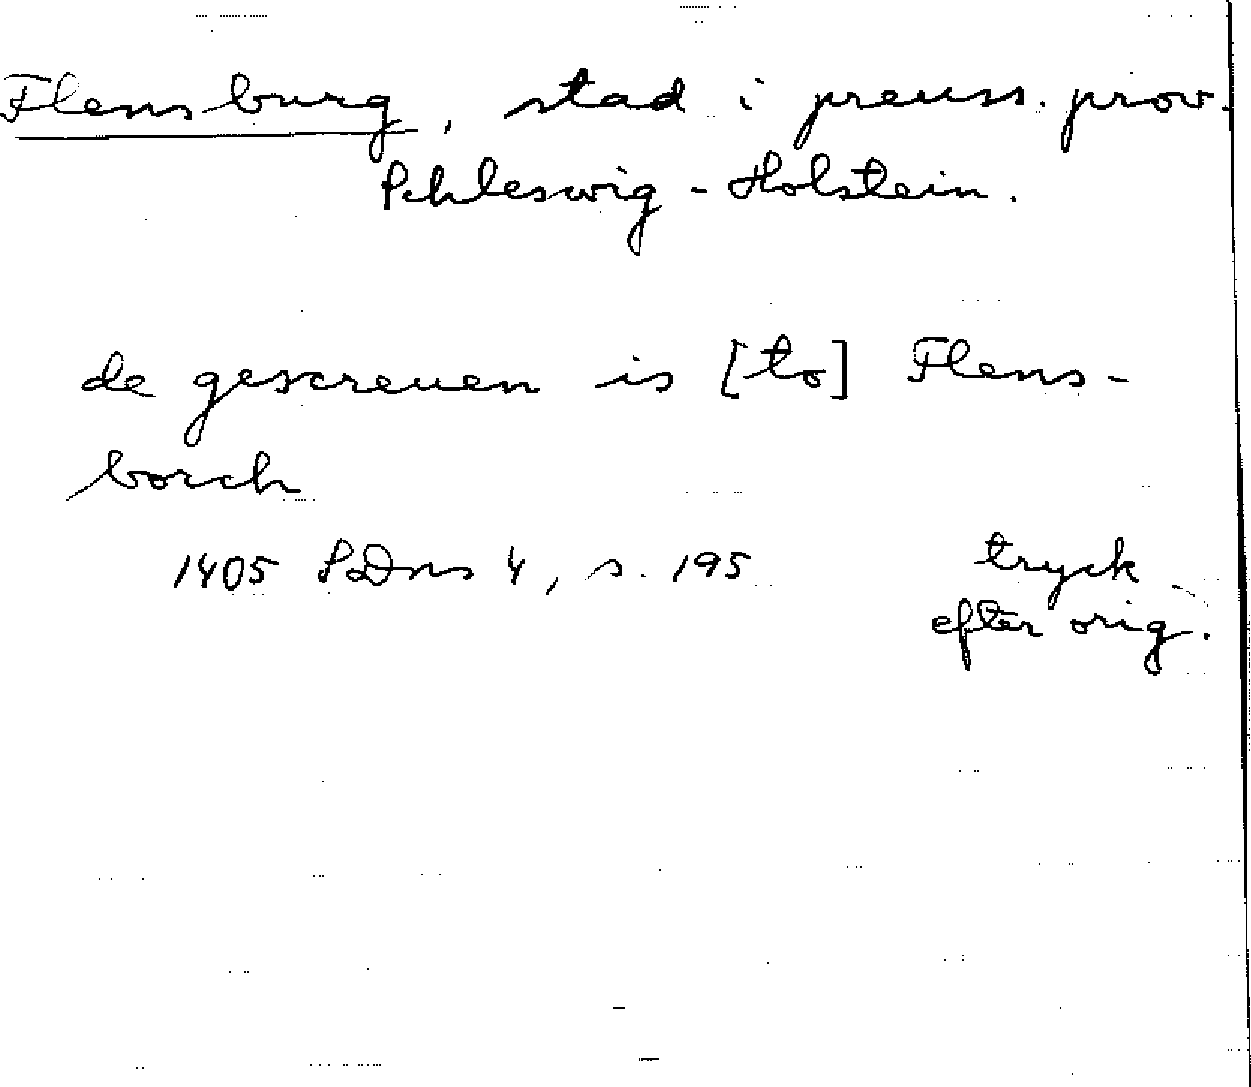 Flensburg, stad i preuss. prov.
Schleswig-Holstein.
de gescreuen is [to] Flens-
borch
1405 SDns 4, s. 195
tryck
efter orig.